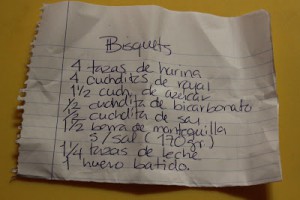 Bisquets
4 tazas de harina
4 cuchditas de royal
1½ cuch. de azúcar
½ cuchdita de bicarbonato
½ cuchdita de sal
1½ barra de mantequilla
s/sal (170 gr.)
1¼ tazas de leche
1 huevo batido.